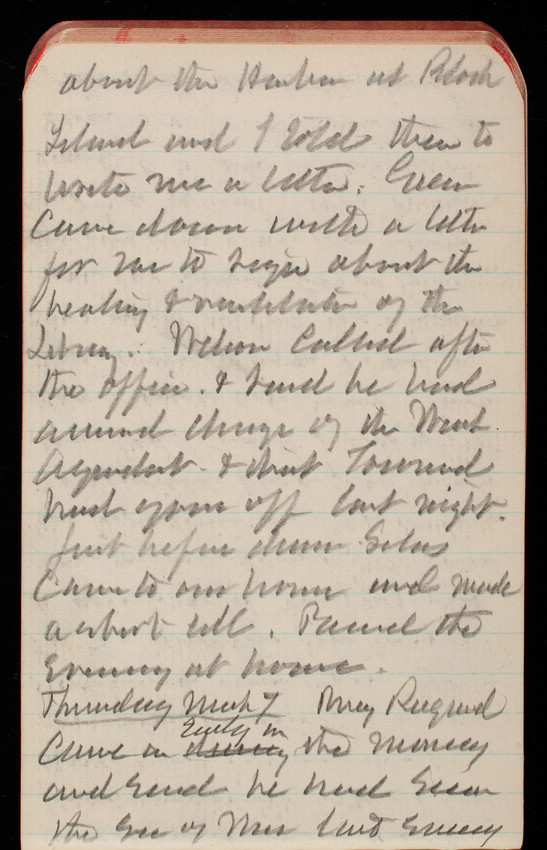 about the Harbor at Block
Island and I told them to
write me a letter. Green
came down with a letter
for me to sign about the
heating & ventilation of the
Library. Wilson called after
the office. & said he had
charge of the Work
& that Townsend
had gone off last night.
Just before dinner
came to our house and made
a short call. Passed the
Evening at home.
Thursday Mch 7
came in Early in the morning
and said he had seen
the Sec of War last Evening